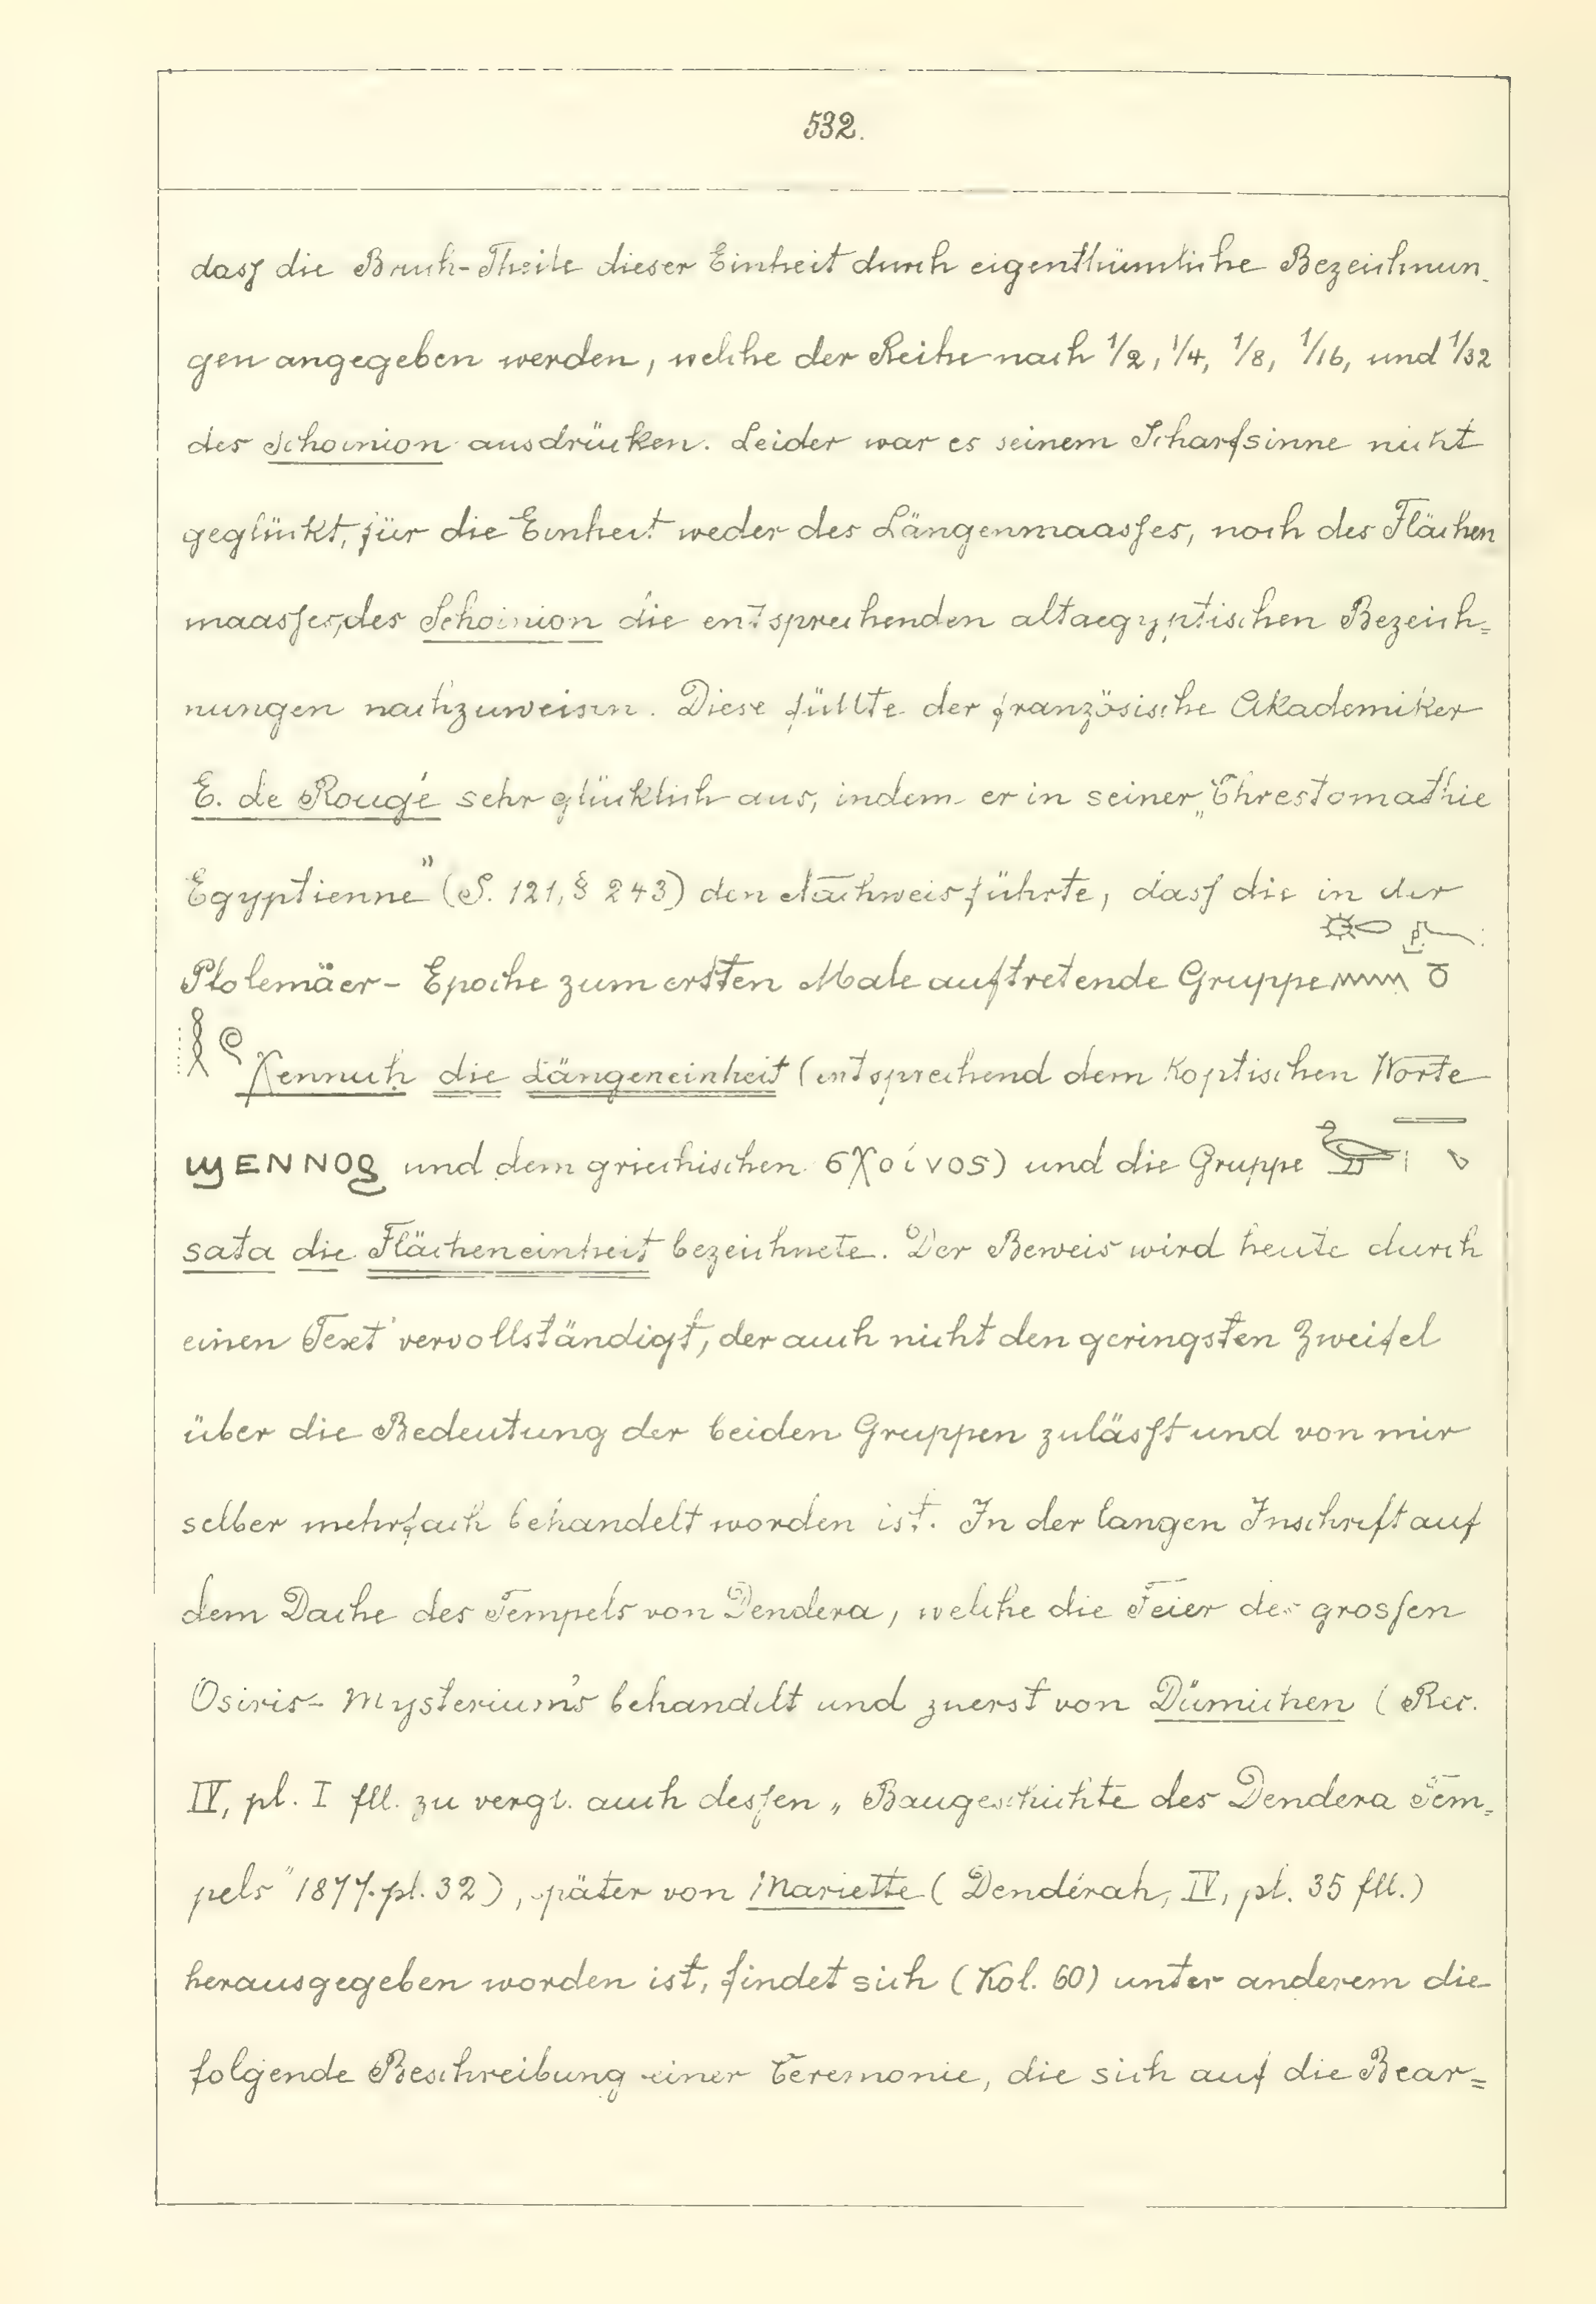 532.
dass die Bruch-Theile dieser Einheit durch eigenthümliche Bezeichnun-
gen angegeben werden, welche der Reihe nach 1/2, 1/4, 1/8, 1/16, und 1/32
des Schoinion ausdrücken. Leider war es seinem Scharfsinne nicht
geglückt, für die Einheit weder des Längenmaasses, noch des Flächen
maasses, des Schoinion die entsprechenden altaegyptischen Bezeich=
nungen nachzuweisen. Diese füllte der französische Akademiker
E. de Rougé sehr glücklich aus, indem er in seiner „Chrestomathie
Egyptienne" (S. 121, § 243) den Nachweis führte, dass die in der
Ptolemäer- Epoche zum ersten Male auftretende Gruppe
χennuh die Längeneinheit (entsprechend dem koptischen Worte
ϣⲉⲛⲛⲟϩ und dem griechischen σχοίνος) und die Gruppe
sata die Flächeneinheit bezeichnete. Der Beweis wird heute durch
einen Text vervollständigt, der auch nicht den geringsten Zweifel
über die Bedeutung der beiden Gruppen zulässt und von mir
selber mehrfach behandelt worden ist. In der langen Inschrift auf
dem Dache des Tempels von Dendera, welche die Feier des grossen
Osiris- Mysterium's behandelt und zuerst von Dümichen (Rec.
IV, pl. I fll. zu vergl. auch dessen „Baugeschichte des Dendera Tem=
pels" 1877. pl. 32), später von Mariette (Dendérah, IV, pl. 35 fll.)
herausgegeben worden ist, findet sich (Kol. 60) unter anderem die
folgende Beschreibung einer Ceremonie, die sich auf die Bear=